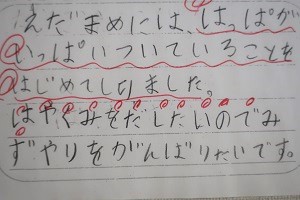 えだまめには、はっぱが
いっぱいついていることを
はじめてしりました。
はやくみをだしたいのでみ
ずやりをがんばりたいです。